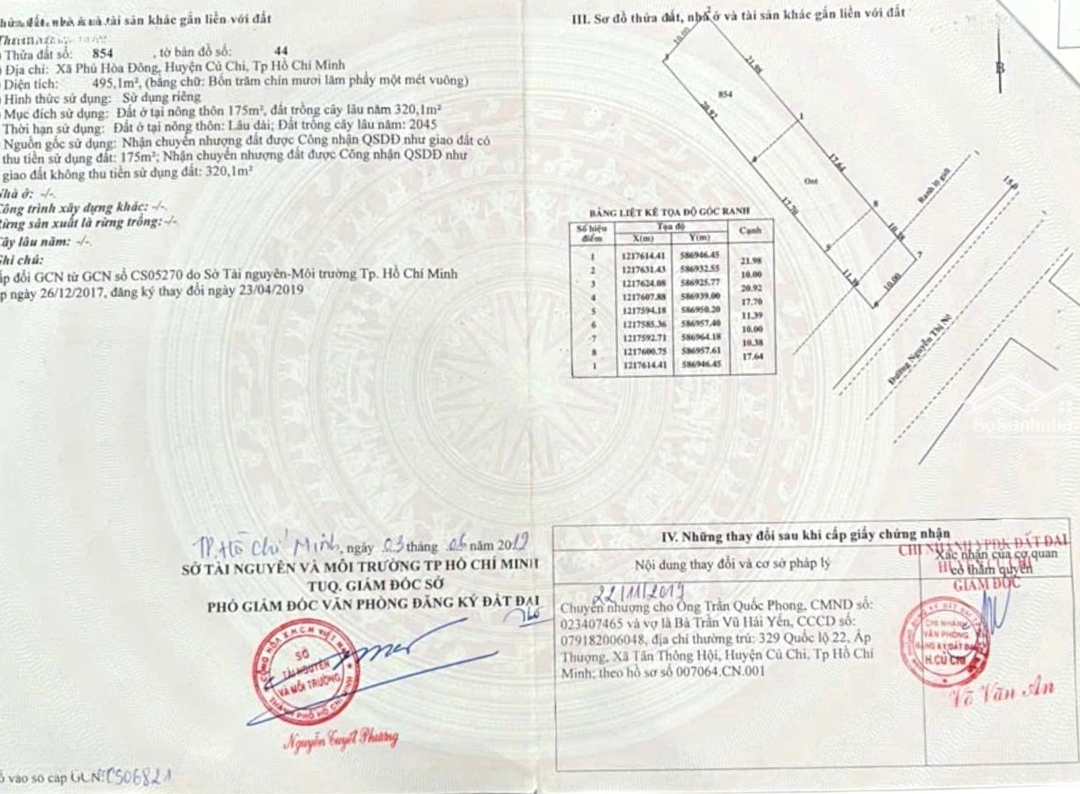 hửa đất, nhà ở và tài sản khác gắn liền với đất
Thửa đất số: 854 , tờ bản đồ số: 44
Địa chỉ: Xã Phú Hòa Đông, Huyện Củ Chi, Tp Hồ Chí Minh
Diện tích: 495,1m², (bằng chữ: Bốn trăm chín mươi lăm phẩy một mét vuông)
Hình thức sử dụng: Sử dụng riêng
Mục đích sử dụng: Đất ở tại nông thôn 175m², đất trồng cây lâu năm 320,1m²
Thời hạn sử dụng: Đất ở tại nông thôn: Lâu dài; Đất trồng cây lâu năm: 2045
Nguồn gốc sử dụng: Nhận chuyển nhượng đất được Công nhận QSDĐ như giao đất có
thu tiền sử dụng đất: 175m²; Nhận chuyển nhượng đất được Công nhận QSDĐ như
giao đất không thu tiền sử dụng đất: 320,1m²
Nhà ở: -/-.
Công trình xây dựng khác: -/-.
Rừng sản xuất là rừng trồng: -/-.
Cây lâu năm: -/-.
Ghi chú:
ấp đổi GCN từ GCN số CS05270 do Sở Tài nguyên-Môi trường Tp. Hồ Chí Minh
p ngày 26/12/2017, đăng ký thay đổi ngày 23/04/2019
TP. Hồ Chí Minh, ngày 03 tháng 06 năm 2019
SỞ TÀI NGUYÊN VÀ MÔI TRƯỜNG TP HỒ CHÍ MINH
TUQ. GIÁM ĐỐC SỞ
PHÓ GIÁM ĐỐC VĂN PHÒNG ĐĂNG KÝ ĐẤT ĐAI
SỞ
TÀI NGUYÊN
VÀ MÔI TRƯỜNG
Nguyễn Tuyết Phương
ố vào sổ cấp GCN: CS06821
III. Sơ đồ thửa đất, nhà ở và tài sản khác gắn liền với đất
10.00
21.98
854
20.92
1
17.64
4
Ont
17.70
8
5
11.39
10.38
7
10.00
6
Ranh lộ giới
15.0
Đường Nguyễn Thị Nê
B
BẢNG LIỆT KÊ TỌA ĐỘ GÓC RANH
Số hiệu điểm Tọa độ Cạnh
X(m) Y(m)
1 1217614.41 586946.45
21.98
2 1217631.43 586932.55
10.00
3 1217624.08 586925.77
20.92
4 1217607.88 586939.00
17.70
5 1217594.18 586950.20
11.39
6 1217585.36 586957.40
10.00
7 1217592.71 586964.18
10.38
8 1217600.75 586957.61
17.64
1 1217614.41 586946.45
IV. Những thay đổi sau khi cấp giấy chứng nhận
Nội dung thay đổi và cơ sở pháp lý
Xác nhận của cơ quan
có thẩm quyền
CHI NHÁNH VPĐK ĐẤT ĐAI
GIÁM ĐỐC
22/11/2019
Chuyển nhượng cho Ông Trần Quốc Phong, CMND số:
023407465 và vợ là Bà Trần Vũ Hải Yến, CCCD số:
079182006048, địa chỉ thường trú: 329 Quốc lộ 22, Ấp
Thượng, Xã Tân Thông Hội, Huyện Củ Chi, Tp Hồ Chí
Minh; theo hồ sơ số 007064.CN.001
CHI NHÁNH
VĂN PHÒNG
ĐĂNG KÝ ĐẤT ĐAI
H.CỦ CHI
Võ Văn An